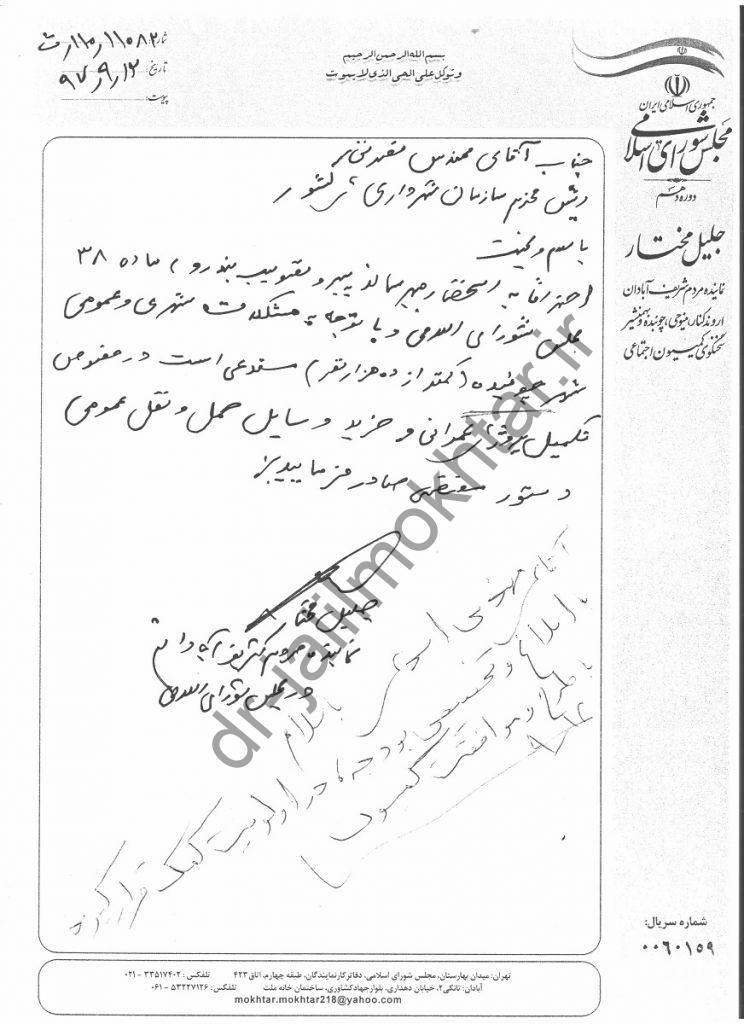 بسم الله الرحمن الرحیم
و توکل علی الحی الذی لا یموت
شماره: ۱۱۰/۱۱۰۸۲/ت
تاریخ: ۹۷/۹/۱۲
پیوست:
جمهوری اسلامی ایران
مجلس شورای اسلامی
دوره دهم
جلیل مختار
نماینده مردم شریف آبادان
اروندکنار، مینوحی، چوئبده و بهمنشیر
سخنگوی کمیسیون اجتماعی
جناب آقای مهندس
رئیس محترم سازمان شهرداری کشور
با سلام و تحیت
احتراماً به استحضار میرساند پیرو تصویب بند و ماده ۳۸
مجلس شورای اسلامی و با توجه به مشکلات شهری و عمومی
شهر چوئبده (کمتر از ده هزار نفر) مستدعی است در خصوص
تکمیل پروژه عمرانی و خرید وسایل حمل و نقل عمومی
دستور مقتضی صادر فرمایید
جلیل مختار
نماینده مردم شریف آبادان
در مجلس شورای اسلامی
آقای مهندس
با سلام
با ابلاغ و تخصیص بودجه، در اولویت کمک قرار گیرد
با طرح و موافقت کمیسیون
dr-jalilmokhtar.ir
شماره سریال:
۰۰۶۰۱۵۹
تهران: میدان بهارستان، مجلس شورای اسلامی، دفاتر کار نمایندگان، طبقه چهارم، اتاق ۴۲۳ تلفکس: ۳۳۵۱۷۴۰۲ - ۰۲۱
آبادان: تانکی۲، خیابان دهداری، بلوار جهاد کشاورزی، ساختمان خانه ملت تلفکس: ۵۳۲۲۷۱۲۶ - ۰۶۱
mokhtar.mokhtar218@yahoo.com